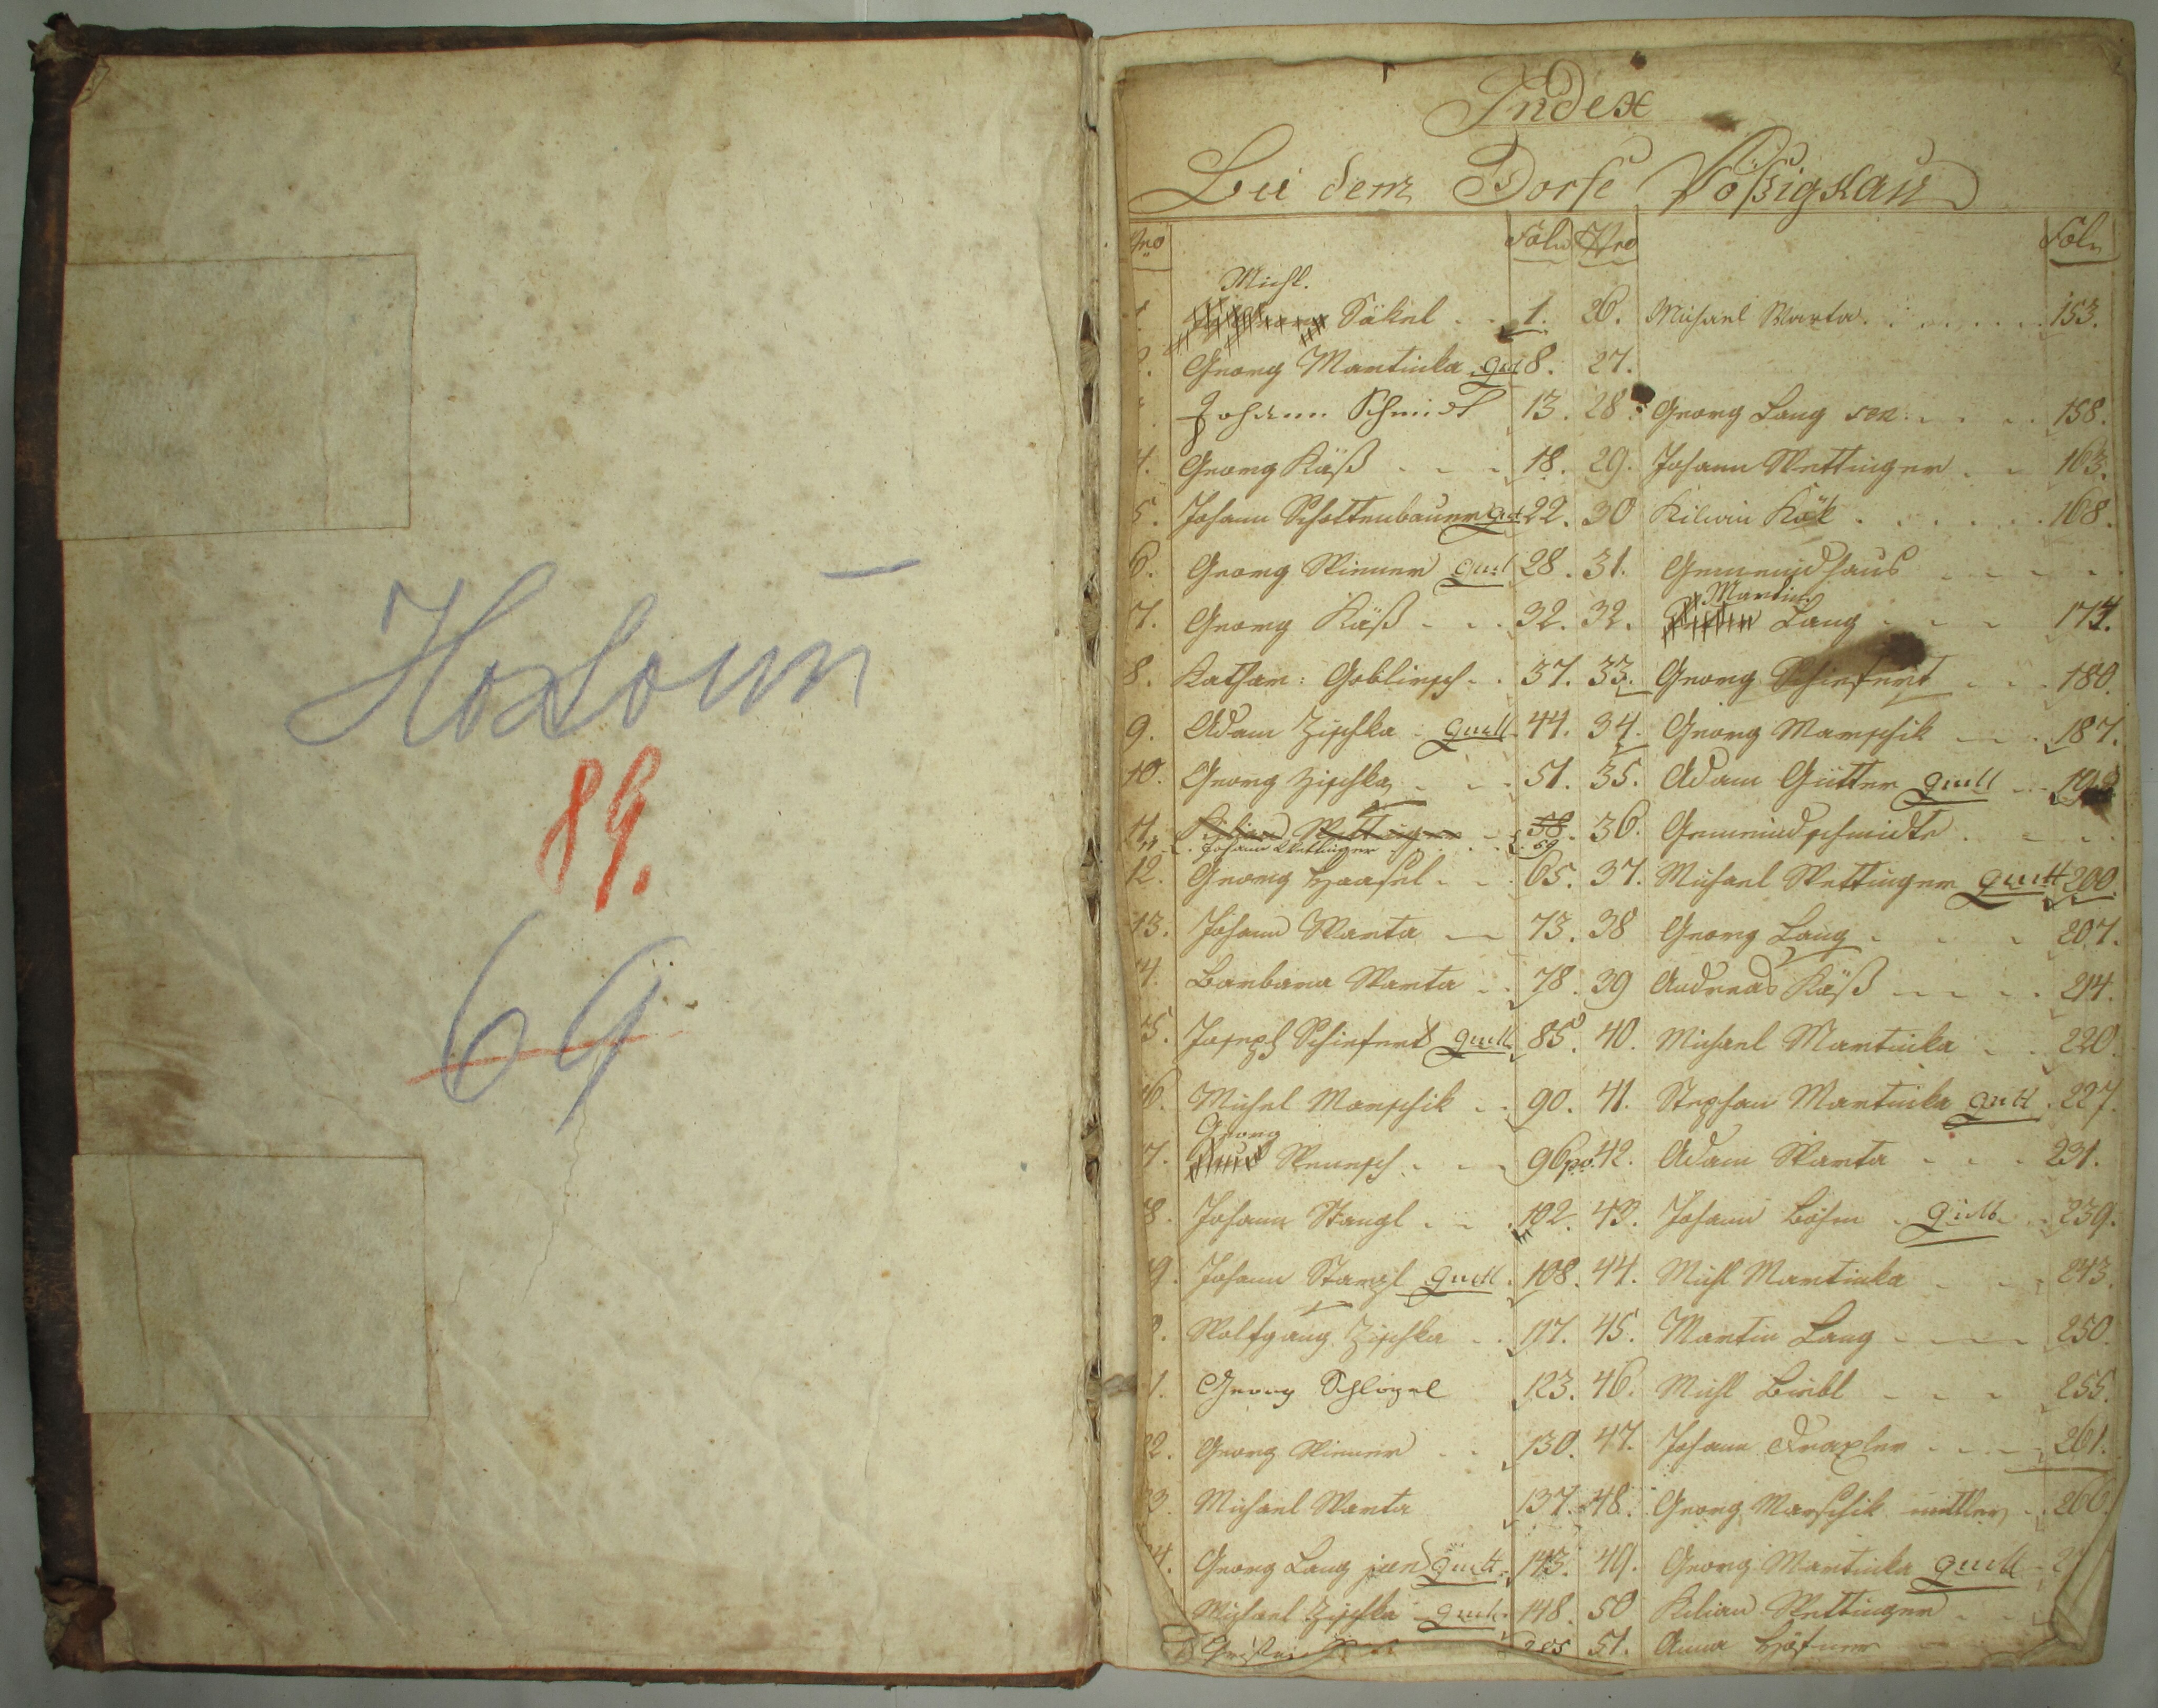 Hosloun
89.
69
Index
Bei dem Dorfe Pößigkau
Nro Folio Nro Folio
Michl.
Säkel 1. 26. Michael Warta 153.
Georg Martinka quit 8. 27.
Johann Schmidt 13. 28. Georg Lang sen. 158.
4. Georg Käß 18. 29. Johann Wettinger 163.
5. Johann Schottenbauer quit 22. 30 Kilian Käk 168.
6. Georg Wiener quit 28. 31. Gemeindhaus
Martin
7. Georg Käß 32. 32. Lang 174.
8. Kathar: Goblirsch 37. 33. Georg Schiefert 180.
9. Adam Zischka quitt 44. 34. Georg Marschik 187.
10. Georg Zischka 51. 35. Adam Gütter quitt
11. Kilian Wettinger 58. 36. Gemeindschmidte
11. Johann Wettinger 59
12. Georg Haasel 65. 37. Michael Wettinger quitt 200.
13. Johann Warta 73. 38 Georg Lang 207.
14. Barbara Warta 78. 39 Andreas Käß 214.
15. Joseph Schiefert quitt 85. 40. Michael Martinka 220.
16. Michel Marschik 90. 41. Stephan Martinka quitt 227.
Georg
17. Wenesch 96 42. Adam Warta 231.
18. Johann Stangl 102. 43. Johann Böhm quitt 239.
19. Johann Stangl quitt 108. 44. Michl Martinka 243.
Wolfgang Zischka 117. 45. Martin Lang 250.
1. Georg Schlögel 123. 46. Michl Beibl 255.
22. Georg Wiener 130. 47. Johann Draxler 261.
23. Michael Warta 137. 48. Georg Marschik mittler 266.
24. Georg Lang jun quitt 143. 49. Georg Martinka quitt
Michael Zischka quitt 148. 50 Kilian Wettinger
205 51. Anna Häfner